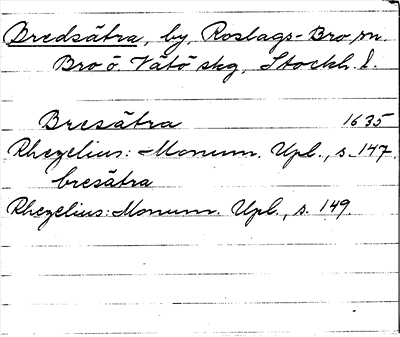 Bredsätra, by, Roslags-Bro sn.
Bro o. Vätö skg, Stockh. l.
Bresätra 1635
Rhezelius: Monum. Upl., s. 147.
bresätra
Rhezelius: Monum. Upl., s. 149.